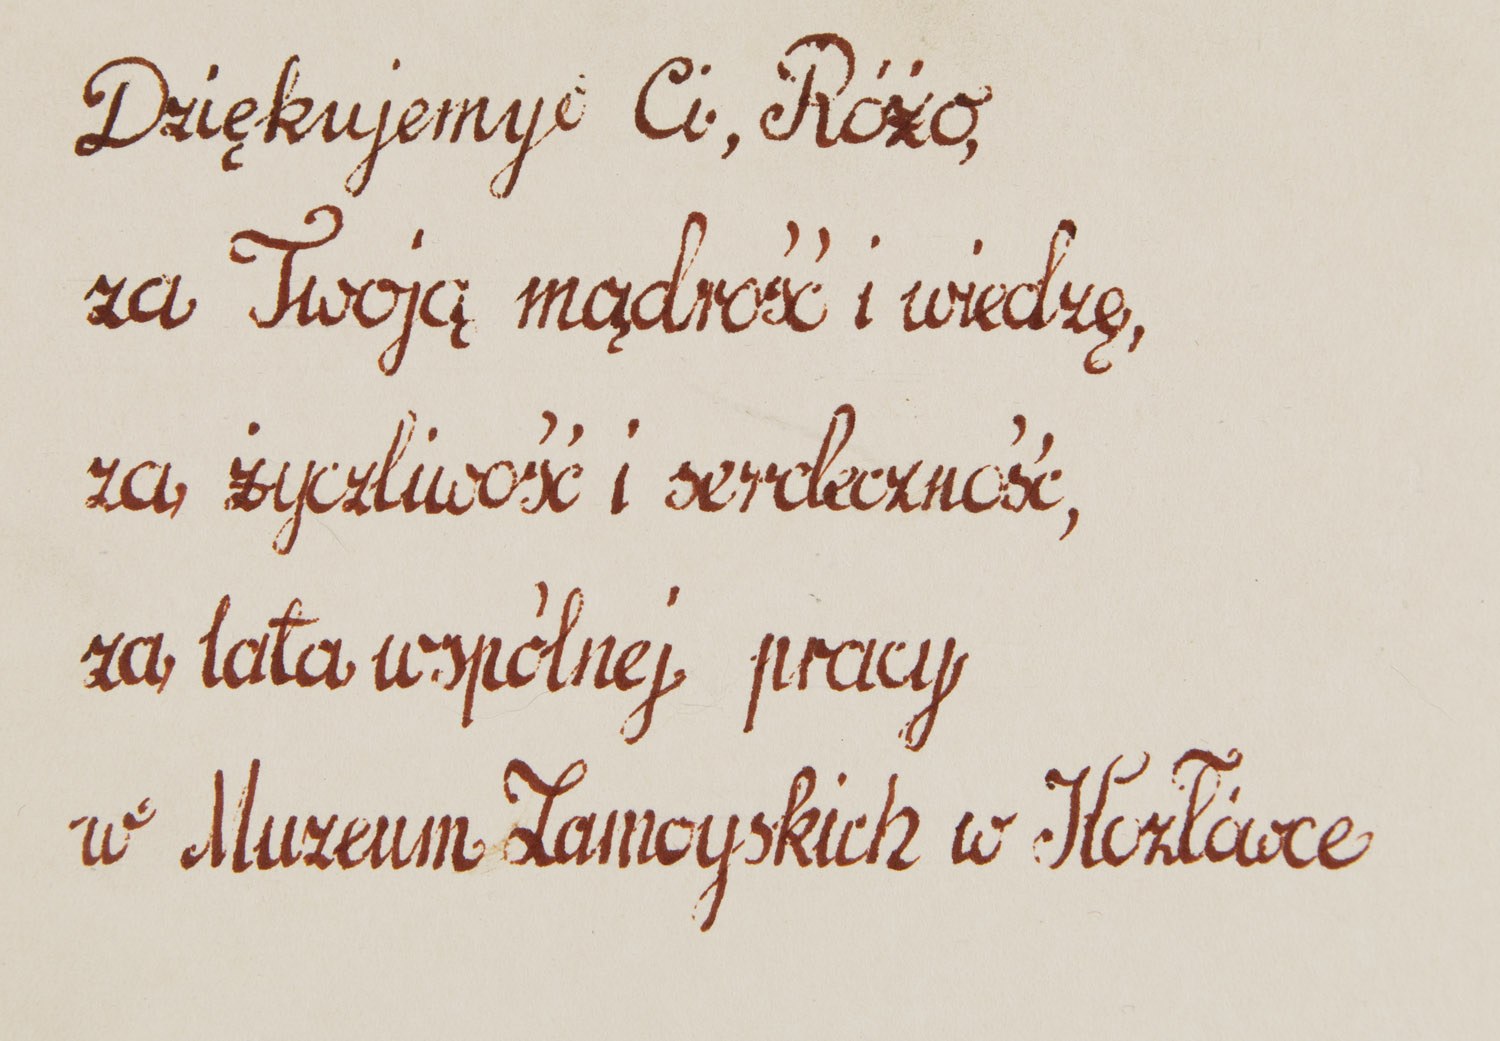 Dziękujemy Ci, Różo,
za Twoją mądrość i wiedzę,
za życzliwość i serdeczność,
za lata wspólnej pracy
w Muzeum Zamoyskich w Kozłówce